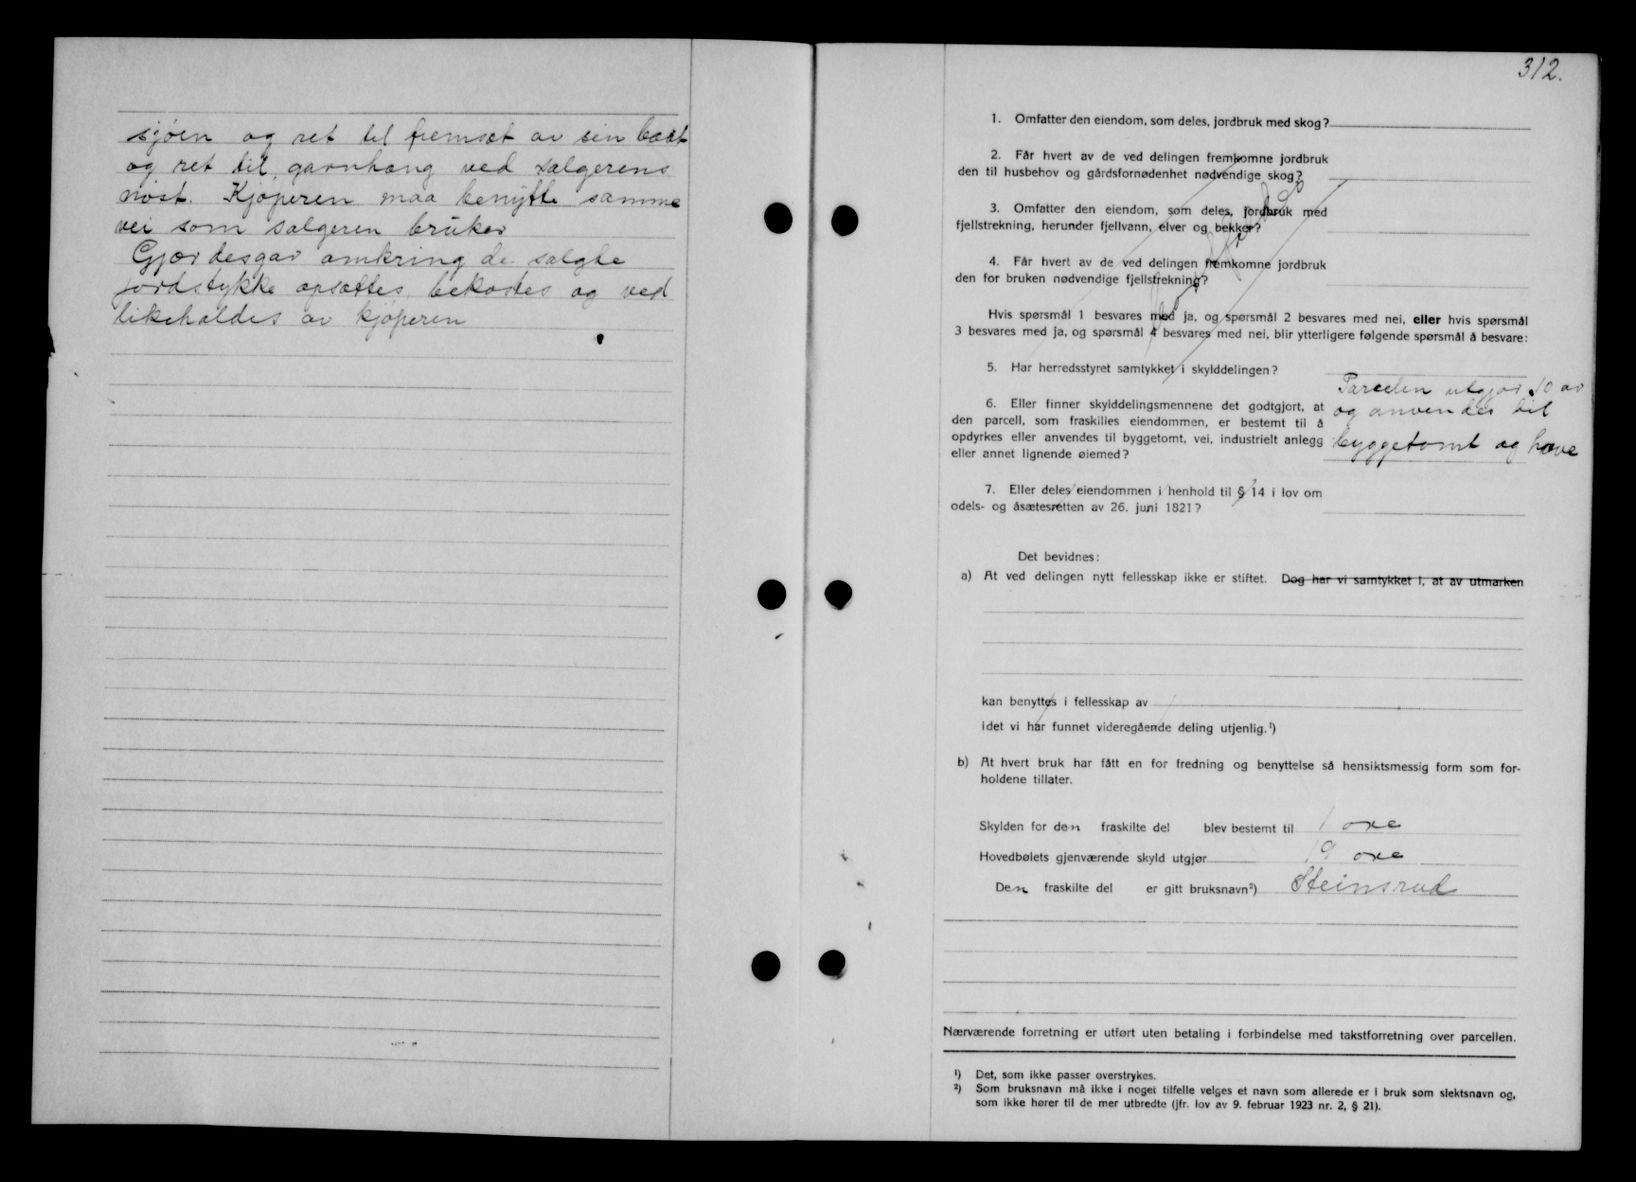 sjöen og ret til fremsæt av sin baat
og ret til garnhæng ved sælgerens
nöst. Kjøperen maa benytte samme
vei som sælgeren bruker
Gjærdesgar omkring de solgte
jordstykke opsættes, bekostes og ved
likeholdes av kjøperen
312.
1. Omfatter den eiendom, som deles, jordbruk med skog?
2. Får hvert av de ved delingen fremkomne jordbruk
den til husbehov og gårdsfornødenhet nødvendige skog?
3. Omfatter den eiendom, som deles, jordbruk med
fjellstrekning, herunder fjellvann, elver og bekker?
4. Får hvert av de ved delingen fremkomne jordbruk
den for bruken nødvendige fjellstrekning?
Hvis spørsmål 1 besvares med ja, og spørsmål 2 besvares med nei, eller hvis spørsmål
3 besvares med ja, og spørsmål 4 besvares med nei, blir ytterligere følgende spørsmål å besvare:
5. Har herredsstyret samtykket i skylddelingen?
6. Eller finner skylddelingsmennene det godtgjort, at
den parcell, som fraskilles eiendommen, er bestemt til å
opdyrkes eller anvendes til byggetomt, vei, industrielt anlegg
eller annet lignende øiemed?
Parcelen utgjør 10 ar
og anvendes til
byggetomt og have
7. Eller deles eiendommen i henhold til § 14 i lov om
odels- og åsætesretten av 26. juni 1821?
Det bevidnes:
a) At ved delingen nytt fellesskap ikke er stiftet. Dog har vi samtykket i, at av utmarken
kan benyttes i fellesskap av
idet vi har funnet videregående deling utjenlig.¹)
b) At hvert bruk har fått en for fredning og benyttelse så hensiktsmessig form som for-
holdene tillater.
Skylden for den fraskilte del blev bestemt til 1 øre
Hovedbølets gjenværende skyld utgjør 19 øre
Den fraskilte del er gitt bruksnavn²) Steinsrud
Nærværende forretning er utført uten betaling i forbindelse med takstforretning over parcellen.
¹) Det, som ikke passer overstrykes.
²) Som bruksnavn må ikke i noget tilfelle velges et navn som allerede er i bruk som slektsnavn og,
som ikke hører til de mer utbredte (jfr. lov av 9. februar 1923 nr. 2, § 21).